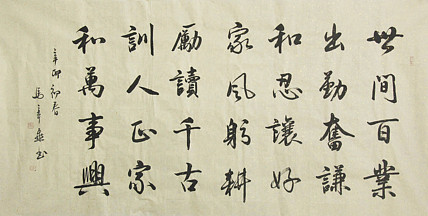 世間百業
出勤奮謙
和忍讓好
家風躬耕
勵讀千古
訓人正家
和萬事興
辛卯初春
馬章 书